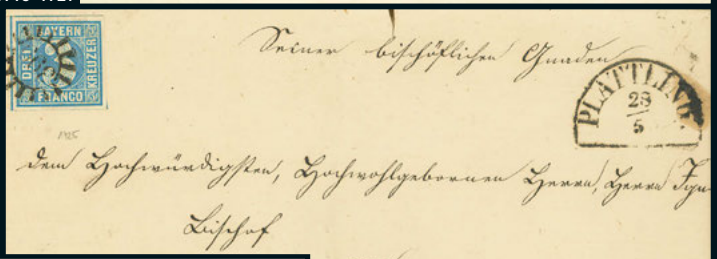 BAYERN
DREI
KREUZER
FRANCO
Seiner bischöflichen Gnaden
PLATTLING.
28
5
dem Hochwürdigsten, Hochwohlgebornen Herrn, Herrn Ign
Bischof